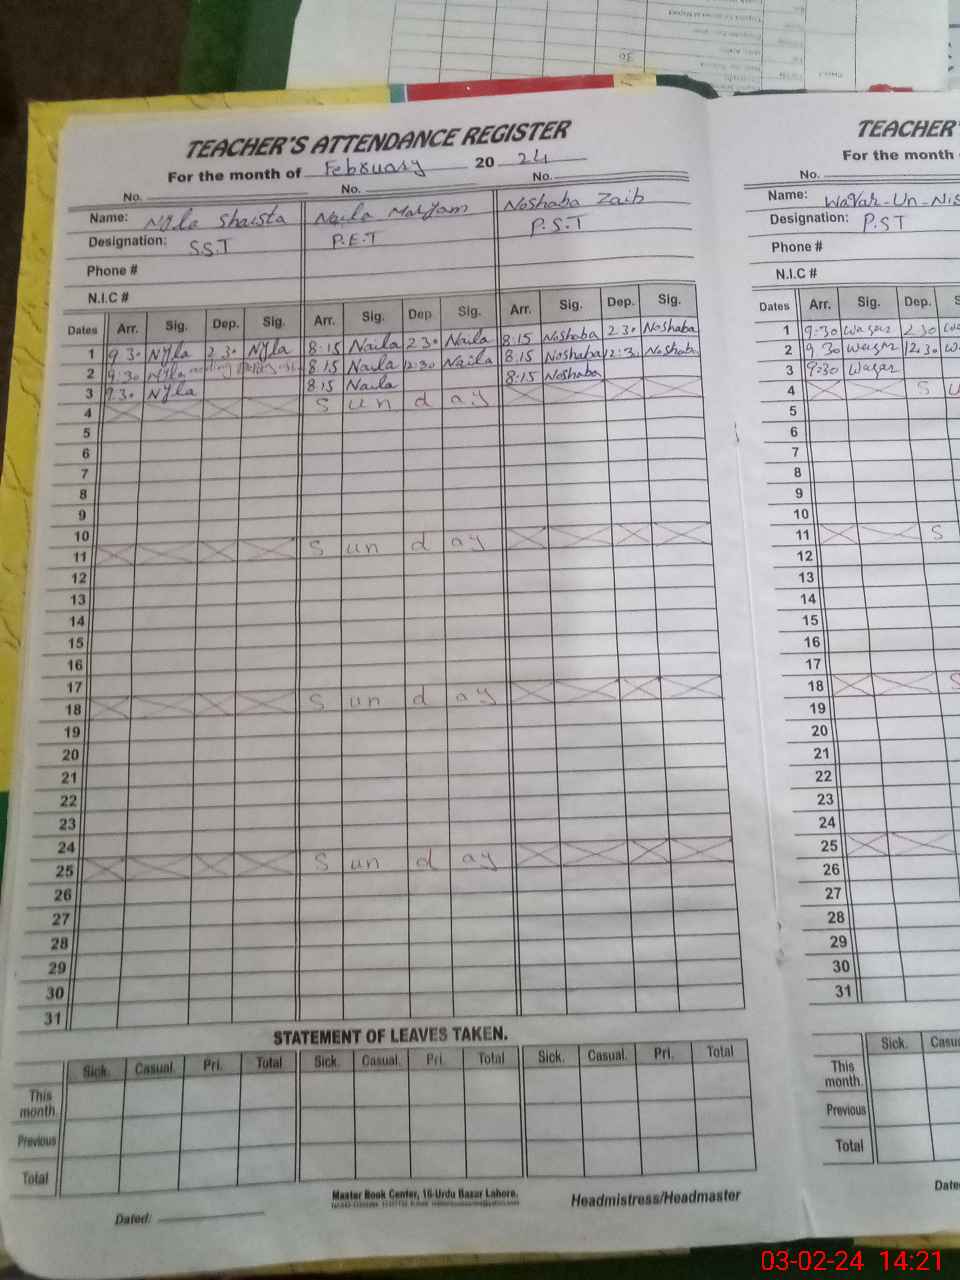 TEACHER'S ATTENDANCE REGISTER
For the month of February 20 24
No. No. No.
Name: Nyla Shaista Naila Maryam Noshaba Zaib
Designation: S.S.T P.E.T P.S.T
Phone #
N.I.C #
Dates Arr. Sig. Dep. Sig. Arr. Sig. Dep. Sig. Arr. Sig. Dep. Sig.
1 9 30 Nyla 2 30 Nyla 8:15 Naila 2 30 Naila 8:15 Noshaba 2 30 Noshaba
2 9:30 Nyla 8 15 Naila 12:30 Naila 8:15 Noshaba 12:30 Noshaba
3 9:30 Nyla 8:15 Naila 8:15 Noshaba
4 S un d ay
5
6
7
8
9
10
11 S un d ay
12
13
14
15
16
17
18 S un d ay
19
20
21
22
23
24
25 S un d ay
26
27
28
29
30
31
STATEMENT OF LEAVES TAKEN.
Sick. Casual. Pri. Total Sick. Casual. Pri. Total Sick. Casual. Pri. Total
This month.
Previous
Total
Master Book Center, 16-Urdu Bazar Lahore.
Dated: Headmistress/Headmaster
TEACHER'
For the month
No.
Name: Waqar-Un-Nis
Designation: P.ST
Phone #
N.I.C #
Dates Arr. Sig. Dep. S
1 9:30 Waqar 2 30 Wa
2 9 30 Waqar 12.30 Wa
3 9:30 Waqar
4 S U
5
6
7
8
9
10
11 S
12
13
14
15
16
17
18 S
19
20
21
22
23
24
25
26
27
28
29
30
31
Sick. Casu
This month.
Previous
Total
Date
03-02-24 14:21